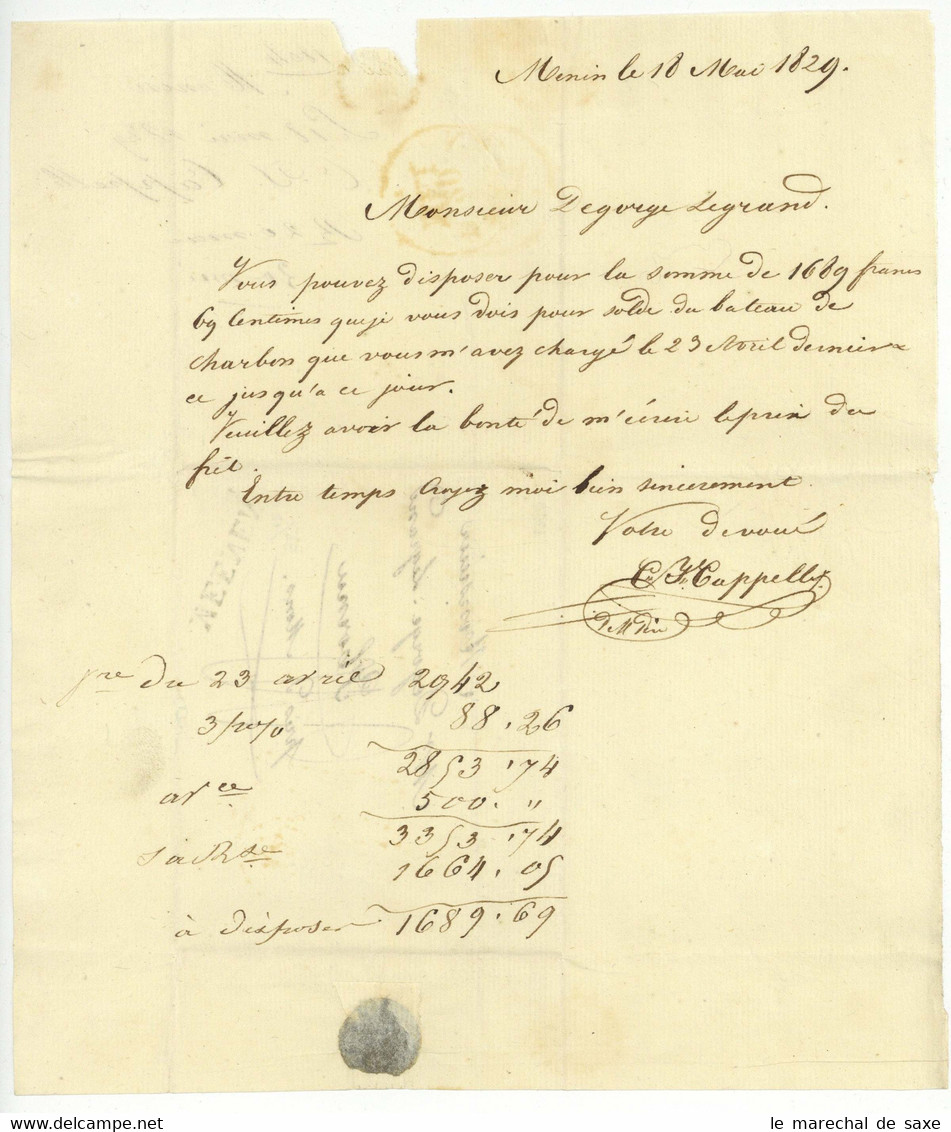 Menin le 18 Mai 1829.
Monsieur Degorge Legrand.
Vous pouvez disposer pour la somme de 1689 francs
69 Centimes que je vous dois pour solde du bateau de
charbon que vous m'avez chargé le 23 Avril dernier
ce jusqu'a ce jour.
Veuillez avoir la bonté de m'écrire le prix du
frêt.
Entre temps Croyez moi bien sincerement
Votre devoué
Cappelle
du 23 avril 2942
3 p% 88.26
2853.74
avce 500. "
3353.74
sa Rse 1664.05
à disposer 1689.69
MEENEN
le marechal de saxe